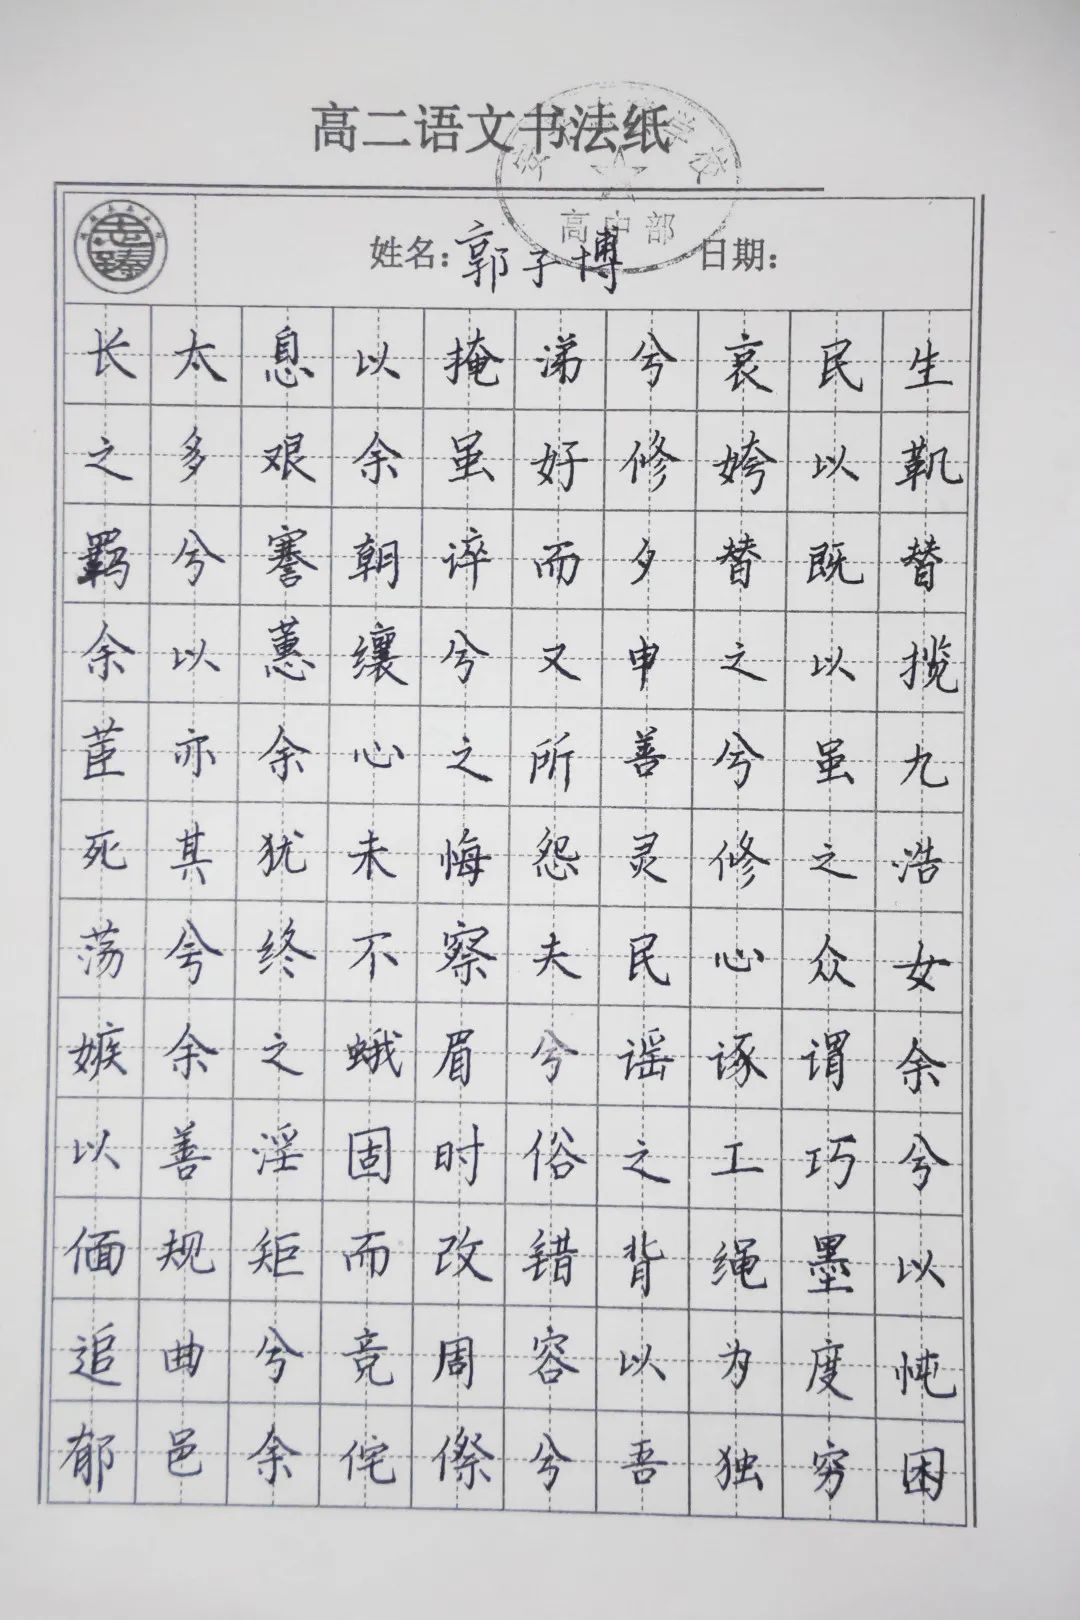 高二语文书法纸
学校
高中部
姓名:郭子博 日期:
长太息以掩涕兮哀民生
之多艰余虽好修姱以鞿
羁兮謇朝谇而夕替既替
余以蕙纕兮又申之以揽
茝亦余心之所善兮虽九
死其犹未悔怨灵修之浩
荡兮终不察夫民心众女
嫉余之蛾眉兮谣诼谓余
以善淫固时俗之工巧兮
偭规矩而改错背绳墨以
追曲兮竞周容以为度忳
郁邑余侘傺兮吾独穷困